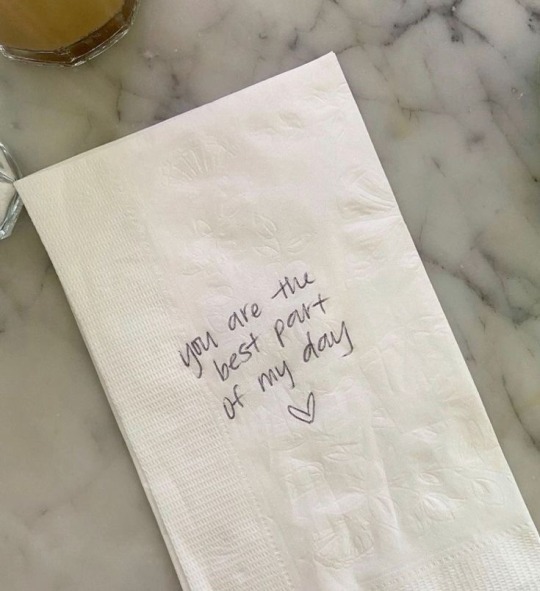 you are the
best part
of my day
♡